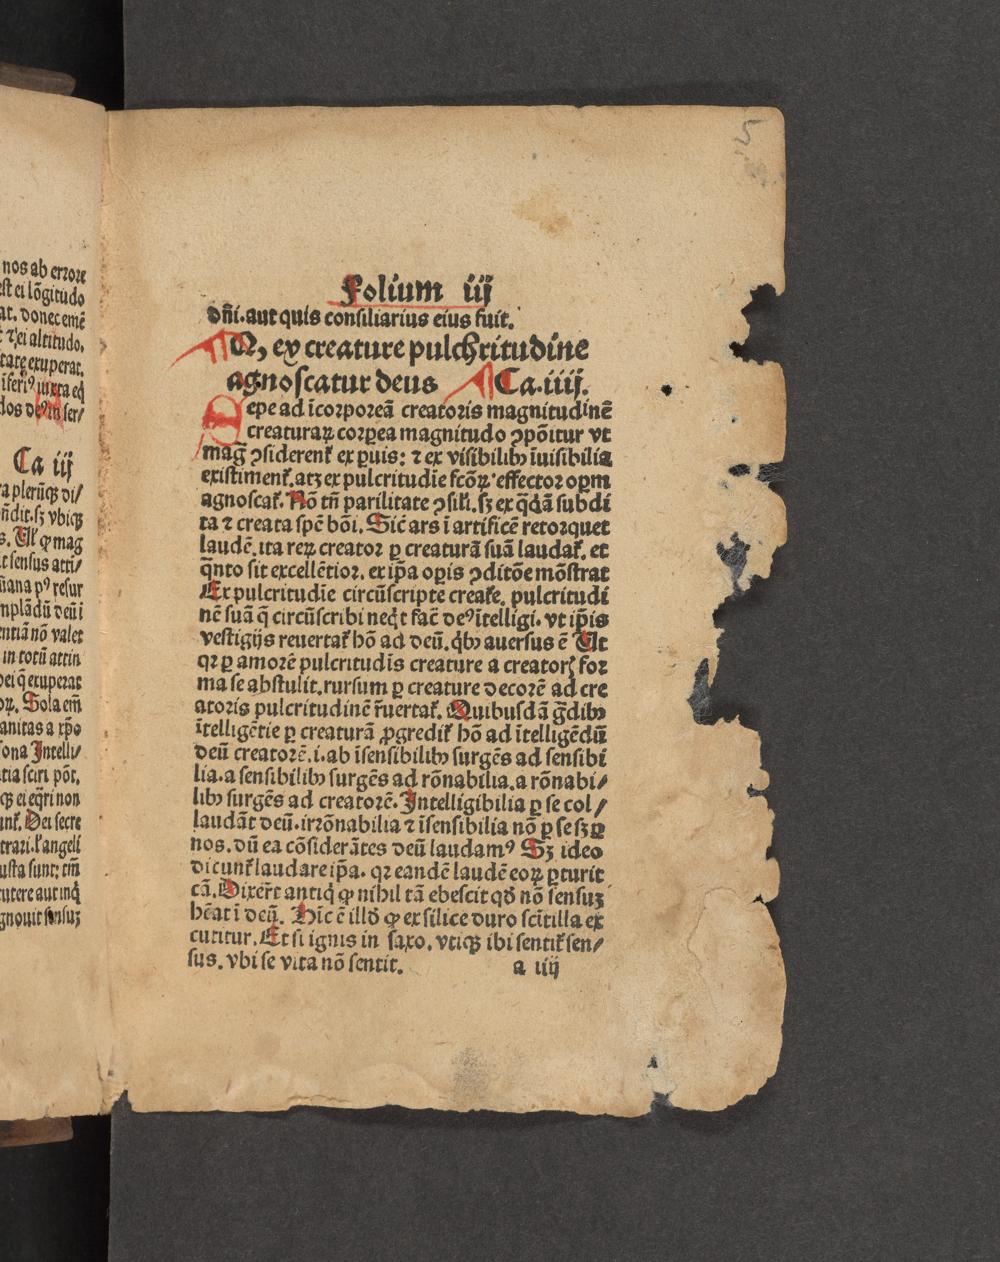 nos ab errore
est ei lõgitudo
at. donec emẽ
⁊ ei altitudo.
tate exuperat.
Ca iij
a plerũqꝫ di/
ñdit. sꝫ vbiqꝫ
s. Ul̃ ꝙ mag
t sensus atti/
ũana pꝰ resur
mplãdũ deũ i
entiã nõ valet
in totũ attin
ei q̃ exuperat
oꝝ. Sola em̃
anitas a xp̃o
sona Intelli/
tia sciri põt.
cqꝫ ei eq̃ri non
unt᷑. Dei secre
trari. l̃ angeli
usta sunt: tm̃
cutere aut inq̃
gnouit sensuꝫ
5
Folium iij
dñi. aut quis consiliarius eius fuit.
¶ Q, ex creature pulchritudine
agnoscatur deus ¶ Ca. iiij.
Sepe ad ĩcorporeã creatoris magnitudinẽ
creaturaꝝ corꝑea magnitudo ꝯpõitur vt
mag̃ ꝯsiderent᷑ ex ꝑuis: ⁊ ex visibilibꝫ ĩuisibilia
existiment᷑. atꝫ ex pulcritudĩe fcõꝝ effector oꝑm
agnoscat᷑. Nõ tñ parilitate ꝯsil̃i. sꝫ ex q̃dã subdi
ta ⁊ creata spẽ bõi. Sic̃ ars ĩ artificẽ retorquet
laudẽ. ita reꝝ creator ꝑ creaturã suã laudat᷑. et
q̃nto sit excellẽtior. ex ip̃a oꝑis ꝯditõe mõstrat
Ex pulcritudĩe circũscripte creat᷑e. pulcritudi
nẽ suã q̃ circũscribi neq̃t fac̃ deꝰ ĩtelligi. vt ip̃is
vestigijs reuertat᷑ hõ ad deũ. q̃bꝫ auersus ẽ Ut
qꝛ ꝑ amorẽ pulcritudĩs creature a creatorꝭ for
ma se abstulit. rursum ꝑ creature decorẽ ad cre
atoris pulcritudinẽ r̃uertat᷑. Quibusdã g̃dibꝫ
ĩtelligẽtie ꝑ creaturã ꝓgredit᷑ hõ ad ĩtelligẽdũ
deũ creatorẽ. i. ab ĩsensibilibꝫ surgẽs ad sensibi
lia. a sensibilibꝫ surgẽs ad rõnabilia. a rõnabi/
libꝫ surgẽs ad creatorẽ. Intelligibilia ꝑ se col/
laudãt deũ. irrõnabilia ⁊ ĩsensibilia nõ ꝑ se sꝫ ꝑ
nos. dũ ea cõsiderãtes deũ laudamꝰ Sꝫ ideo
dicunt᷑ laudare ip̃a. qꝛ eandẽ laudẽ eoꝝ ꝑturit
cã. Dixer̃t antiq̃ ꝙ nihil tã ebescit qd̃ nõ sensuꝫ
hẽat ĩ deũ. Hic ẽ illd̃ ꝙ ex silice duro scĩtilla ex
cutitur. Et si ignis in saxo. vtiqꝫ ibi sentit᷑ sen/
sus. vbi se vita nõ sentit. a iiij